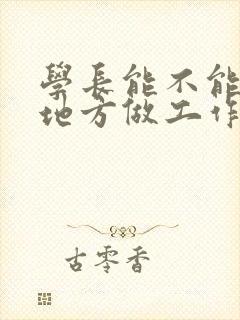 學長能不能
地方做工作
古零香